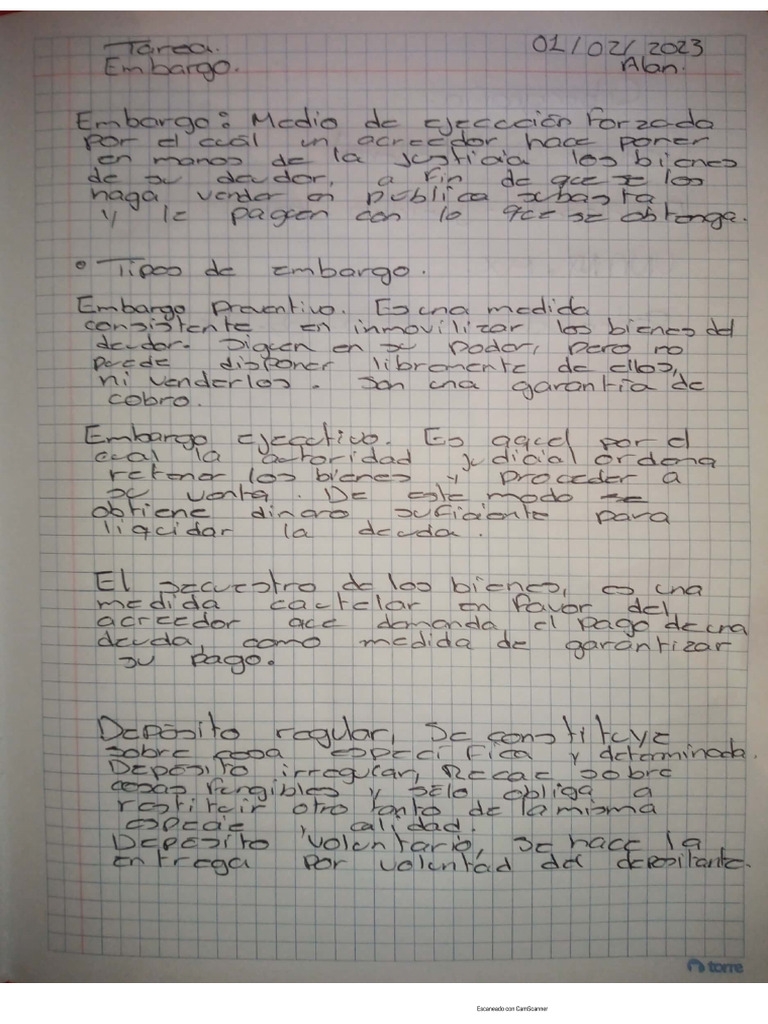 Tarea. 01/02/2023
Embargo. Alan.
Embargo: Medio de ejecución forzada
por el cuál un acreedor hace poner
en manos de la justicia los bienes
de su deudor, a fin de que se los
haga vender en pública subasta
y le paguen con lo que se obtenga.
• Tipos de embargo.
Embargo Preventivo. Es una medida
consistente en inmovilizar los bienes del
deudor. Siguen en su poder, pero no
puede disponer libremente de ellos,
ni venderlos. Son una garantía de
cobro.
Embargo Ejecutivo. Es aquel por el
cual la autoridad judicial ordena
retener los bienes y proceder a
su venta. De este modo se
obtiene dinero suficiente para
liquidar la deuda.
El secuestro de los bienes, es una
medida cautelar en favor del
acreedor que demanda el pago de una
deuda, como medida de garantizar
su pago.
Depósito regular, Se constituye
sobre cosa específica y determinada.
Depósito irregular, Recae sobre
cosas fungibles y sólo obliga a
restituir otro tanto de la misma
especie y calidad.
Depósito voluntario, Se hace la
entrega por voluntad del depositante.
torre
Escaneado con CamScanner